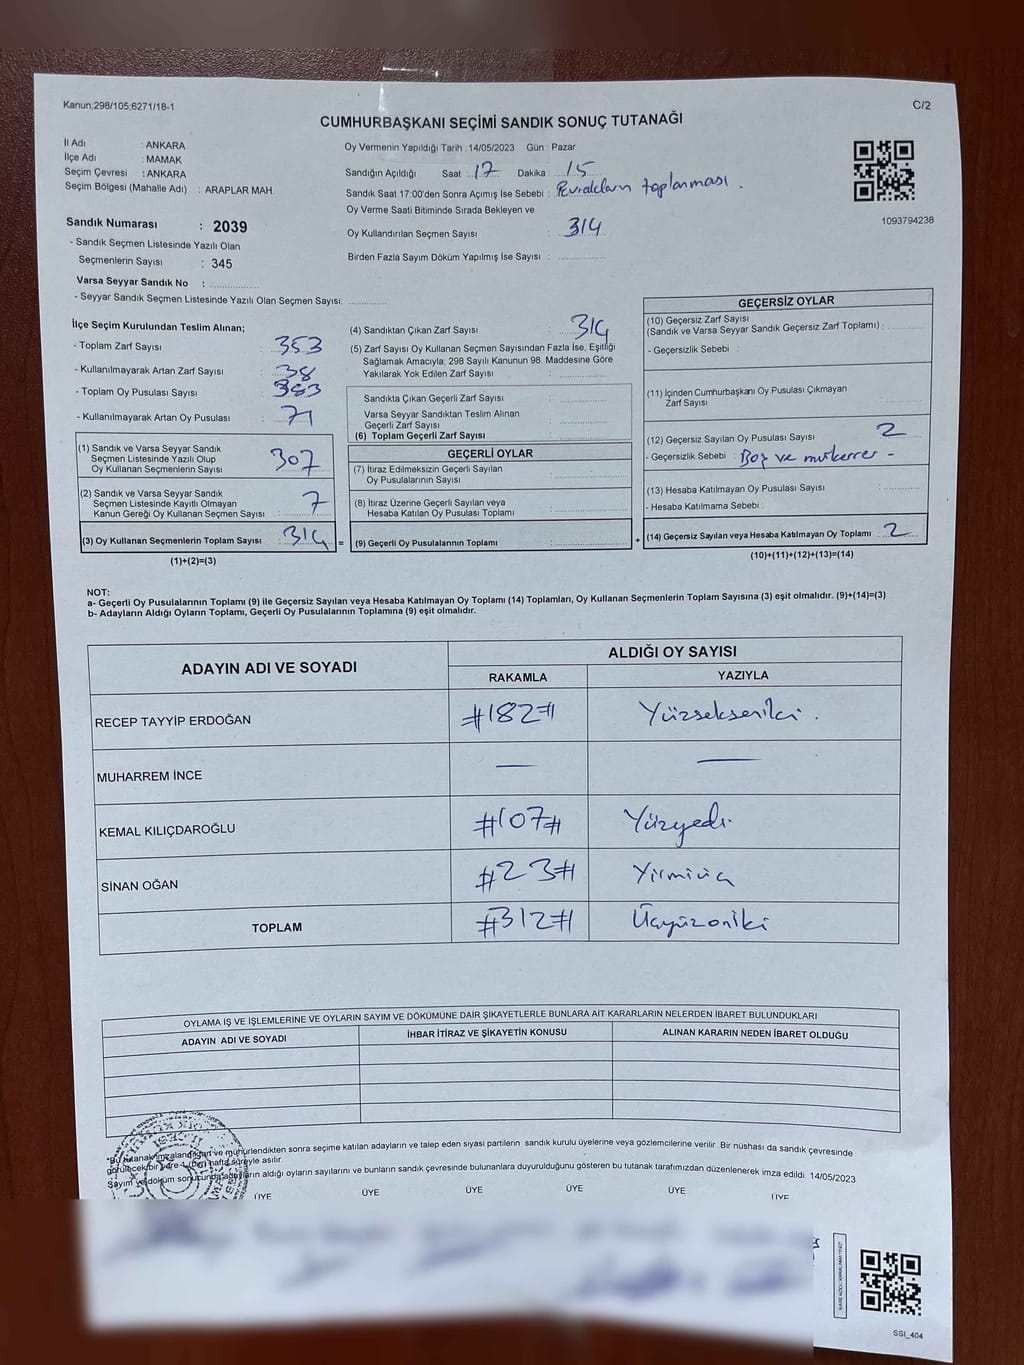 Kanun;298/105;6271/18-1
C/2
CUMHURBAŞKANI SEÇİMİ SANDIK SONUÇ TUTANAĞI
İl Adı : ANKARA
İlçe Adı : MAMAK
Seçim Çevresi : ANKARA
Seçim Bölgesi (Mahalle Adı) : ARAPLAR MAH.
Oy Vermenin Yapıldığı Tarih : 14/05/2023 Gün : Pazar
Sandığın Açıldığı Saat : 17 Dakika : 15
Sandık Saat 17:00'den Sonra Açımış İse Sebebi : toplanması.
Oy Verme Saati Bitiminde Sırada Bekleyen ve
Oy Kullandırılan Seçmen Sayısı : 314
Birden Fazla Sayım Döküm Yapılmış İse Sayısı :
1093794238
Sandık Numarası : 2039
- Sandık Seçmen Listesinde Yazılı Olan
Seçmenlerin Sayısı : 345
Varsa Seyyar Sandık No :
- Seyyar Sandık Seçmen Listesinde Yazılı Olan Seçmen Sayısı:
İlçe Seçim Kurulundan Teslim Alınan;
- Toplam Zarf Sayısı : 353
- Kullanılmayarak Artan Zarf Sayısı : 38
- Toplam Oy Pusulası Sayısı : 383
- Kullanılmayarak Artan Oy Pusulası : 71
(1) Sandık ve Varsa Seyyar Sandık
Seçmen Listesinde Yazılı Olup
Oy Kullanan Seçmenlerin Sayısı : 307
(2) Sandık ve Varsa Seyyar Sandık
Seçmen Listesinde Kayıtlı Olmayan
Kanun Gereği Oy Kullanan Seçmen Sayısı : 7
(3) Oy Kullanan Seçmenlerin Toplam Sayısı : 314
(1)+(2)=(3)
(4) Sandıktan Çıkan Zarf Sayısı : 314
(5) Zarf Sayısı Oy Kullanan Seçmen Sayısından Fazla İse, Eşitliği
Sağlamak Amacıyla; 298 Sayılı Kanunun 98. Maddesine Göre
Yakılarak Yok Edilen Zarf Sayısı :
Sandıkta Çıkan Geçerli Zarf Sayısı :
Varsa Seyyar Sandıktan Teslim Alınan
Geçerli Zarf Sayısı :
(6) Toplam Geçerli Zarf Sayısı :
GEÇERLİ OYLAR
(7) İtiraz Edilmeksizin Geçerli Sayılan
Oy Pusulalarının Sayısı :
(8) İtiraz Üzerine Geçerli Sayılan veya
Hesaba Katılan Oy Pusulası Toplamı :
= (9) Geçerli Oy Pusulalarının Toplamı :
GEÇERSİZ OYLAR
(10) Geçersiz Zarf Sayısı
(Sandık ve Varsa Seyyar Sandık Geçersiz Zarf Toplamı) :
- Geçersizlik Sebebi :
(11) İçinden Cumhurbaşkanı Oy Pusulası Çıkmayan
Zarf Sayısı :
(12) Geçersiz Sayılan Oy Pusulası Sayısı : 2
- Geçersizlik Sebebi : Boş ve mükerrer -
(13) Hesaba Katılmayan Oy Pusulası Sayısı :
- Hesaba Katılmama Sebebi :
+ (14) Geçersiz Sayılan veya Hesaba Katılmayan Oy Toplamı : 2
(10)+(11)+(12)+(13)=(14)
NOT:
a- Geçerli Oy Pusulalarının Toplamı (9) ile Geçersiz Sayılan veya Hesaba Katılmayan Oy Toplamı (14) Toplamları, Oy Kullanan Seçmenlerin Toplam Sayısına (3) eşit olmalıdır. (9)+(14)=(3)
b- Adayların Aldığı Oyların Toplamı, Geçerli Oy Pusulalarının Toplamına (9) eşit olmalıdır.
ADAYIN ADI VE SOYADI ALDIĞI OY SAYISI
RAKAMLA YAZIYLA
RECEP TAYYİP ERDOĞAN #182# Yüzsekseniki.
MUHARREM İNCE — —
KEMAL KILIÇDAROĞLU #107# Yüzyedi.
SİNAN OĞAN #23# Yirmiüç
TOPLAM #312# Üçyüzoniki
OYLAMA İŞ VE İŞLEMLERİNE VE OYLARIN SAYIM VE DÖKÜMÜNE DAİR ŞİKAYETLERLE BUNLARA AİT KARARLARIN NELERDEN İBARET BULUNDUKLARI
ADAYIN ADI VE SOYADI İHBAR İTİRAZ VE ŞİKAYETİN KONUSU ALINAN KARARIN NEDEN İBARET OLDUĞU
*Bu tutanak imzalandıktan ve mühürlendikten sonra seçime katılan adayların ve talep eden siyasi partilerin sandık kurulu üyelerine veya gözlemcilerine verilir. Bir nüshası da sandık çevresinde
görülecek bir yere 1 (bir) hafta süreyle asılır.
Sayım ve döküm sonucunda adayların aldığı oyların sayılarını ve bunların sandık çevresinde bulunanlara duyurulduğunu gösteren bu tutanak tarafımızdan düzenlenerek imza edildi. 14/05/2023
ÜYE ÜYE ÜYE ÜYE ÜYE ÜYE
SSI_404